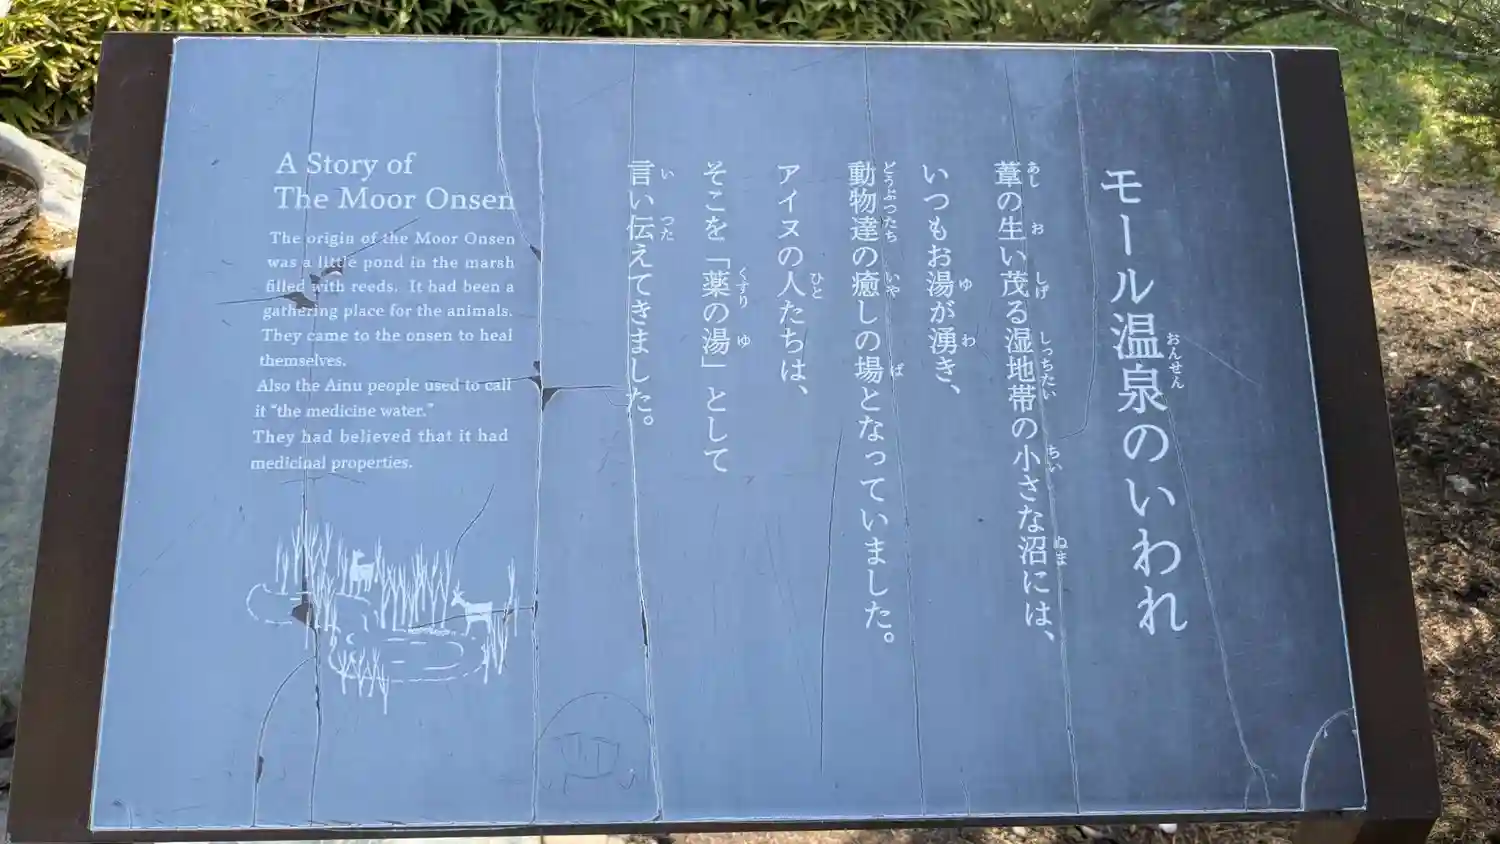 モール温泉のいわれ
おんせん
葦の生い茂る湿地帯の小さな沼には、
あし お しげ しっちたい ちい ぬま
いつもお湯が湧き、
ゆ わ
動物達の癒しの場となっていました。
どうぶつたち いや ば
アイヌの人たちは、
ひと
そこを「薬の湯」として
くすり ゆ
言い伝えてきました。
い つた
A Story of
The Moor Onsen
The origin of the Moor Onsen
was a little pond in the marsh
filled with reeds. It had been a
gathering place for the animals.
They came to the onsen to heal
themselves.
Also the Ainu people used to call
it “the medicine water.”
They had believed that it had
medicinal properties.